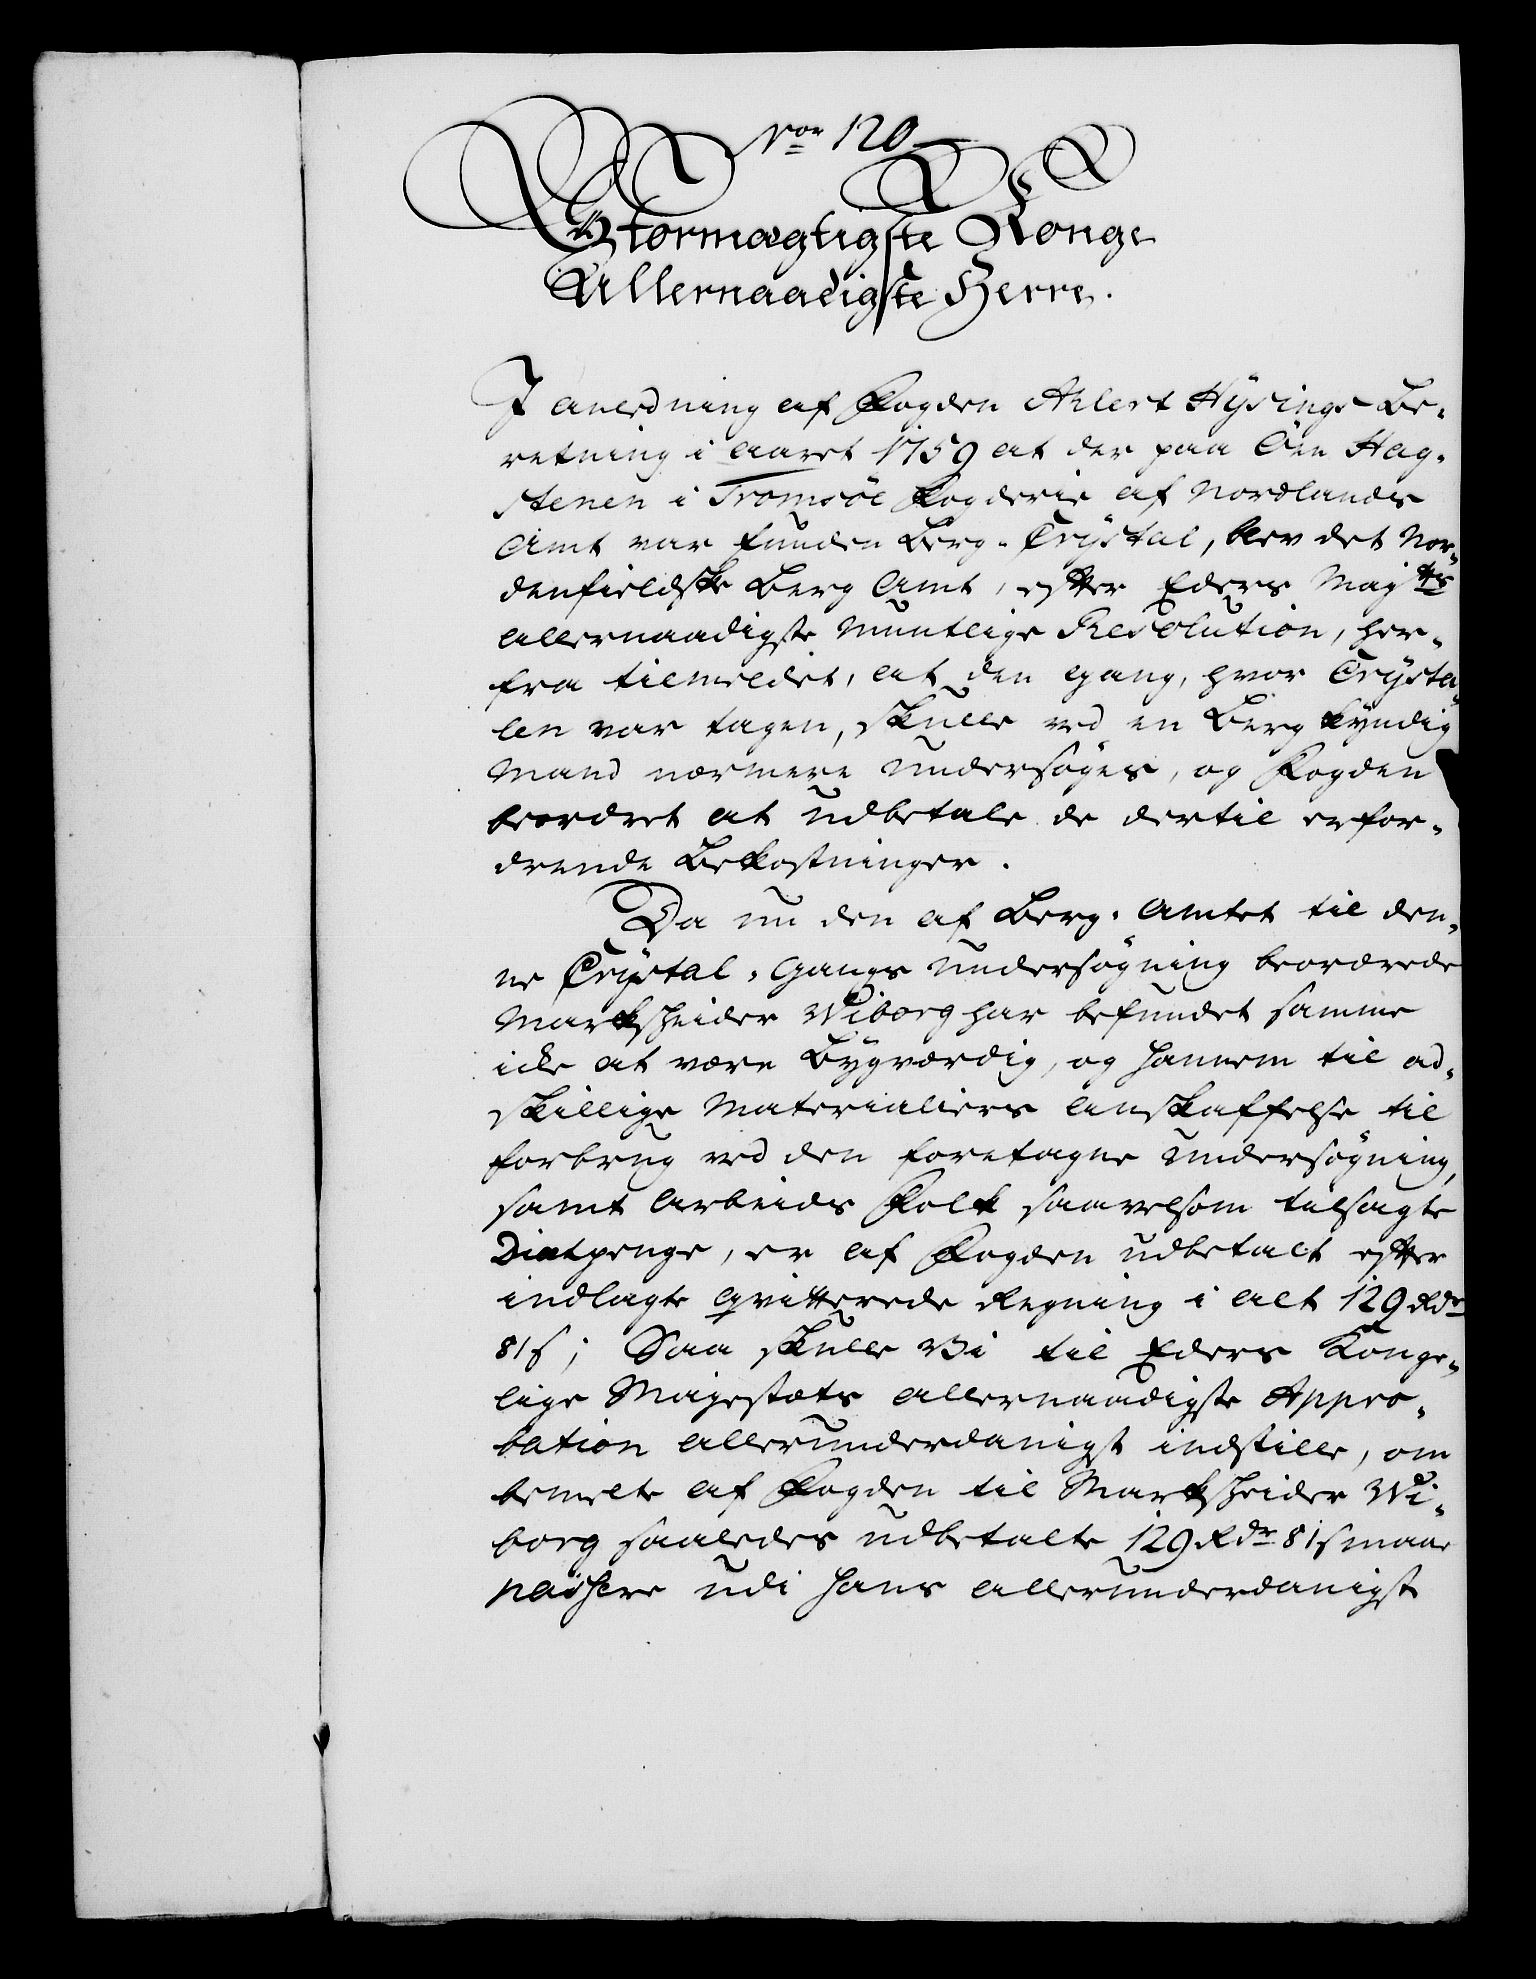 Nor 120
Stormægtigste Konge
Allernaadigste Herre.
I anledning af Fogden Ahlert Hysings Be-
retning i aaret 1759 at der paa Öen Hag-
stenen i Tromsöe Fogderie af Nordlands
Amt var funden Berg-Crystal, blev det Nor-
denfieldske Berg Amt, efter Eders Majts
allernaadigste Mundtlige Resolution, her-
fra tilmeldet, at den gang, hvor Crysta-
len var tagen, skulle ved en Berg kyndig
Mand nærmere undersöges, og Fogden
beordret at udbetale de dertil erfor-
drende Bekostninger.
Da nu den af Berg-Amtet til den-
ne Crystal-Gangs undersögning beordrede
Markscheider Wiborg har befundet samme
icke at være Bygværdig, og hannem til ad-
skillige Materialiers anskaffelse til
forbrug ved den foretagne undersögning,
samt Arbeids Folk saavelsom tilsagte
Diætpenge, er af Fogden udbetalt efter
indlagte qvitterede Regning i alt 129 Rdr
81 s; Saa skulle Vi til Eders Konge-
lige Majestæts allernaadigste Appro-
bation allerunderdanigst indstille, om
bemelte af Fogden til Markscheider Wi-
borg saaledes udbetalte 129 Rdr 81 s maae
passere udi hans allerunderdanigst